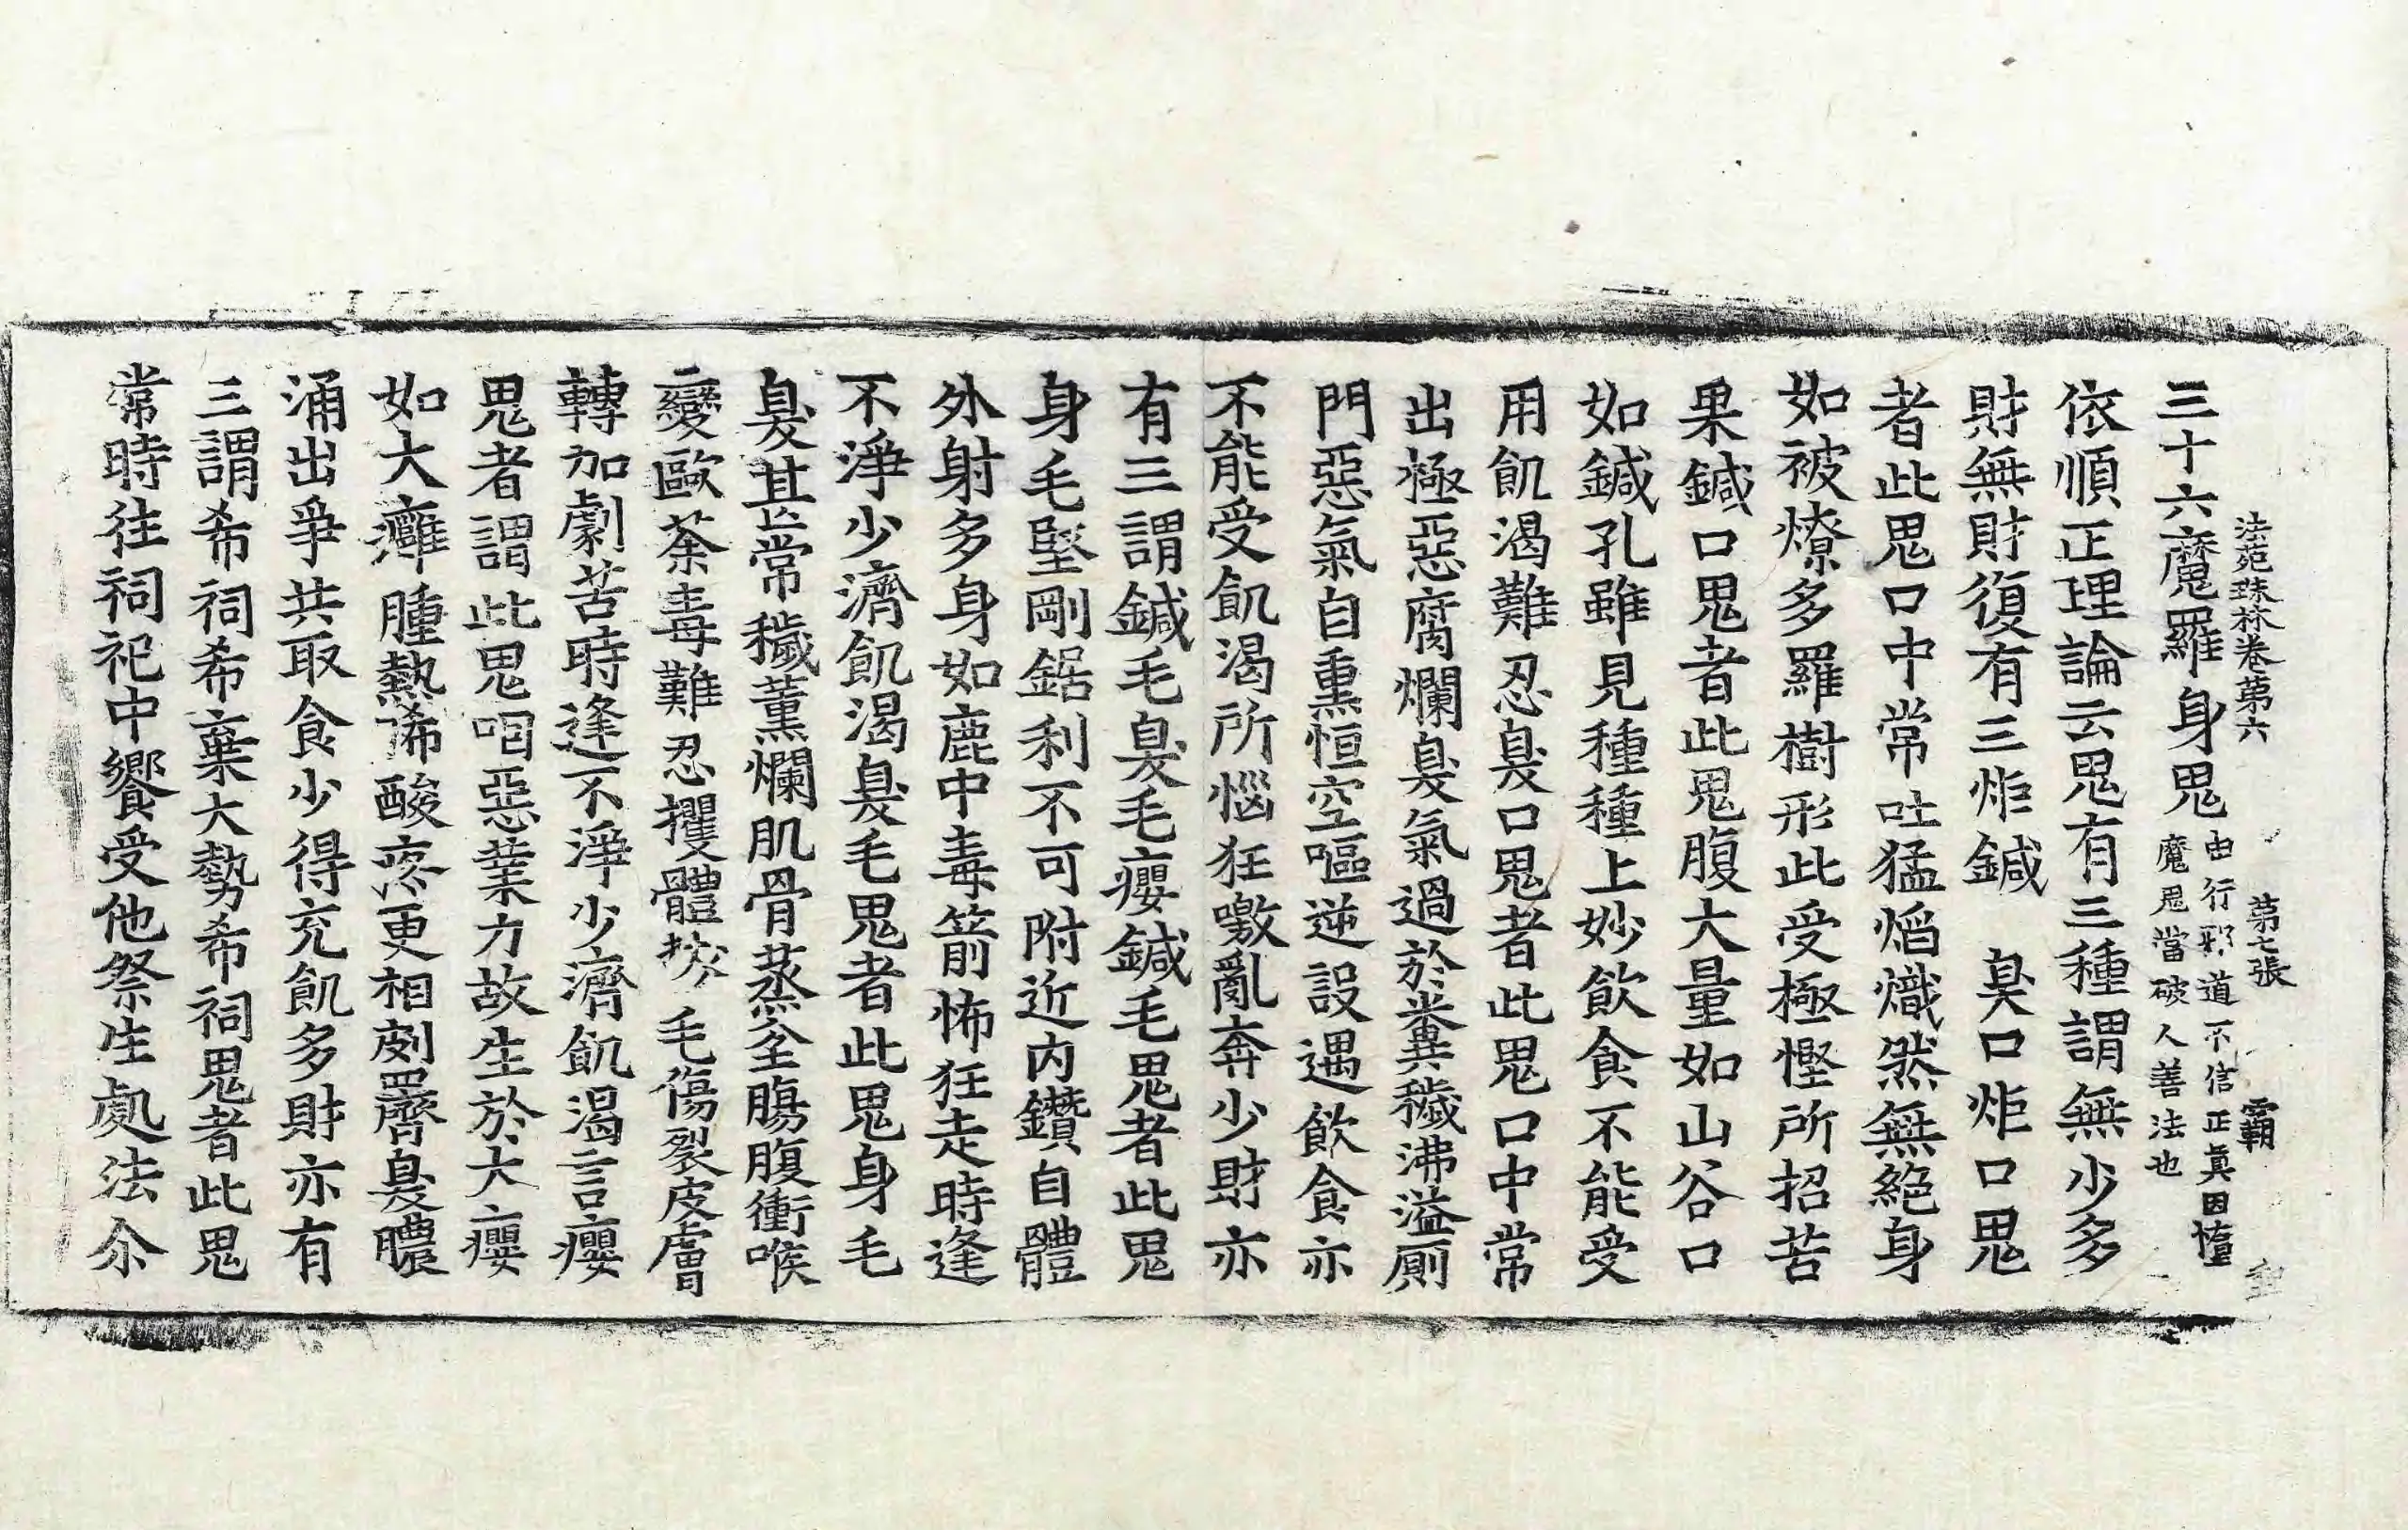 法苑珠林卷第六 第七張 霸
三十六魔羅身鬼由行邪道不信正眞因憻
魔鬼當破人善法也
依順正理論云鬼有三種謂無少多
財無財復有三炬鍼 臭口炬口鬼
者此鬼口中常吐猛焰熾然無絕身
如被燎多羅樹形此受極慳所招苦
果鍼口鬼者此鬼腹大量如山谷口
如鍼孔雖見種種上妙飮食不能受
用飢渴難忍臭口鬼者此鬼口中常
出極惡腐爛臭氣過於糞穢沸溢廁
門惡氣自熏恒空嘔逆設遇飮食亦
不能受飢渴所惱狂噭亂奔少財亦
有三謂鍼毛臭毛癭鍼毛鬼者此鬼
身毛堅剛銛利不可附近內鑽自體
外射多身如鹿中毒箭怖狂走時逢
不淨少濟飢渴臭毛鬼者此鬼身毛
臭甚常穢薰爛肌骨蒸坌膓腹衝喉
變歐荼毒難忍攫體拔毛傷裂皮膚
轉加劇苦時逢不淨少濟飢渴言癭
鬼者謂此鬼咽惡業力故生於大癭
如大癰腫熱狶酸疼更相剫罽臭膿
涌出爭共取食少得充飢多財亦有
三謂希祠希棄大勢希祠鬼者此鬼
常時往祠祀中饗受他祭生處法尒